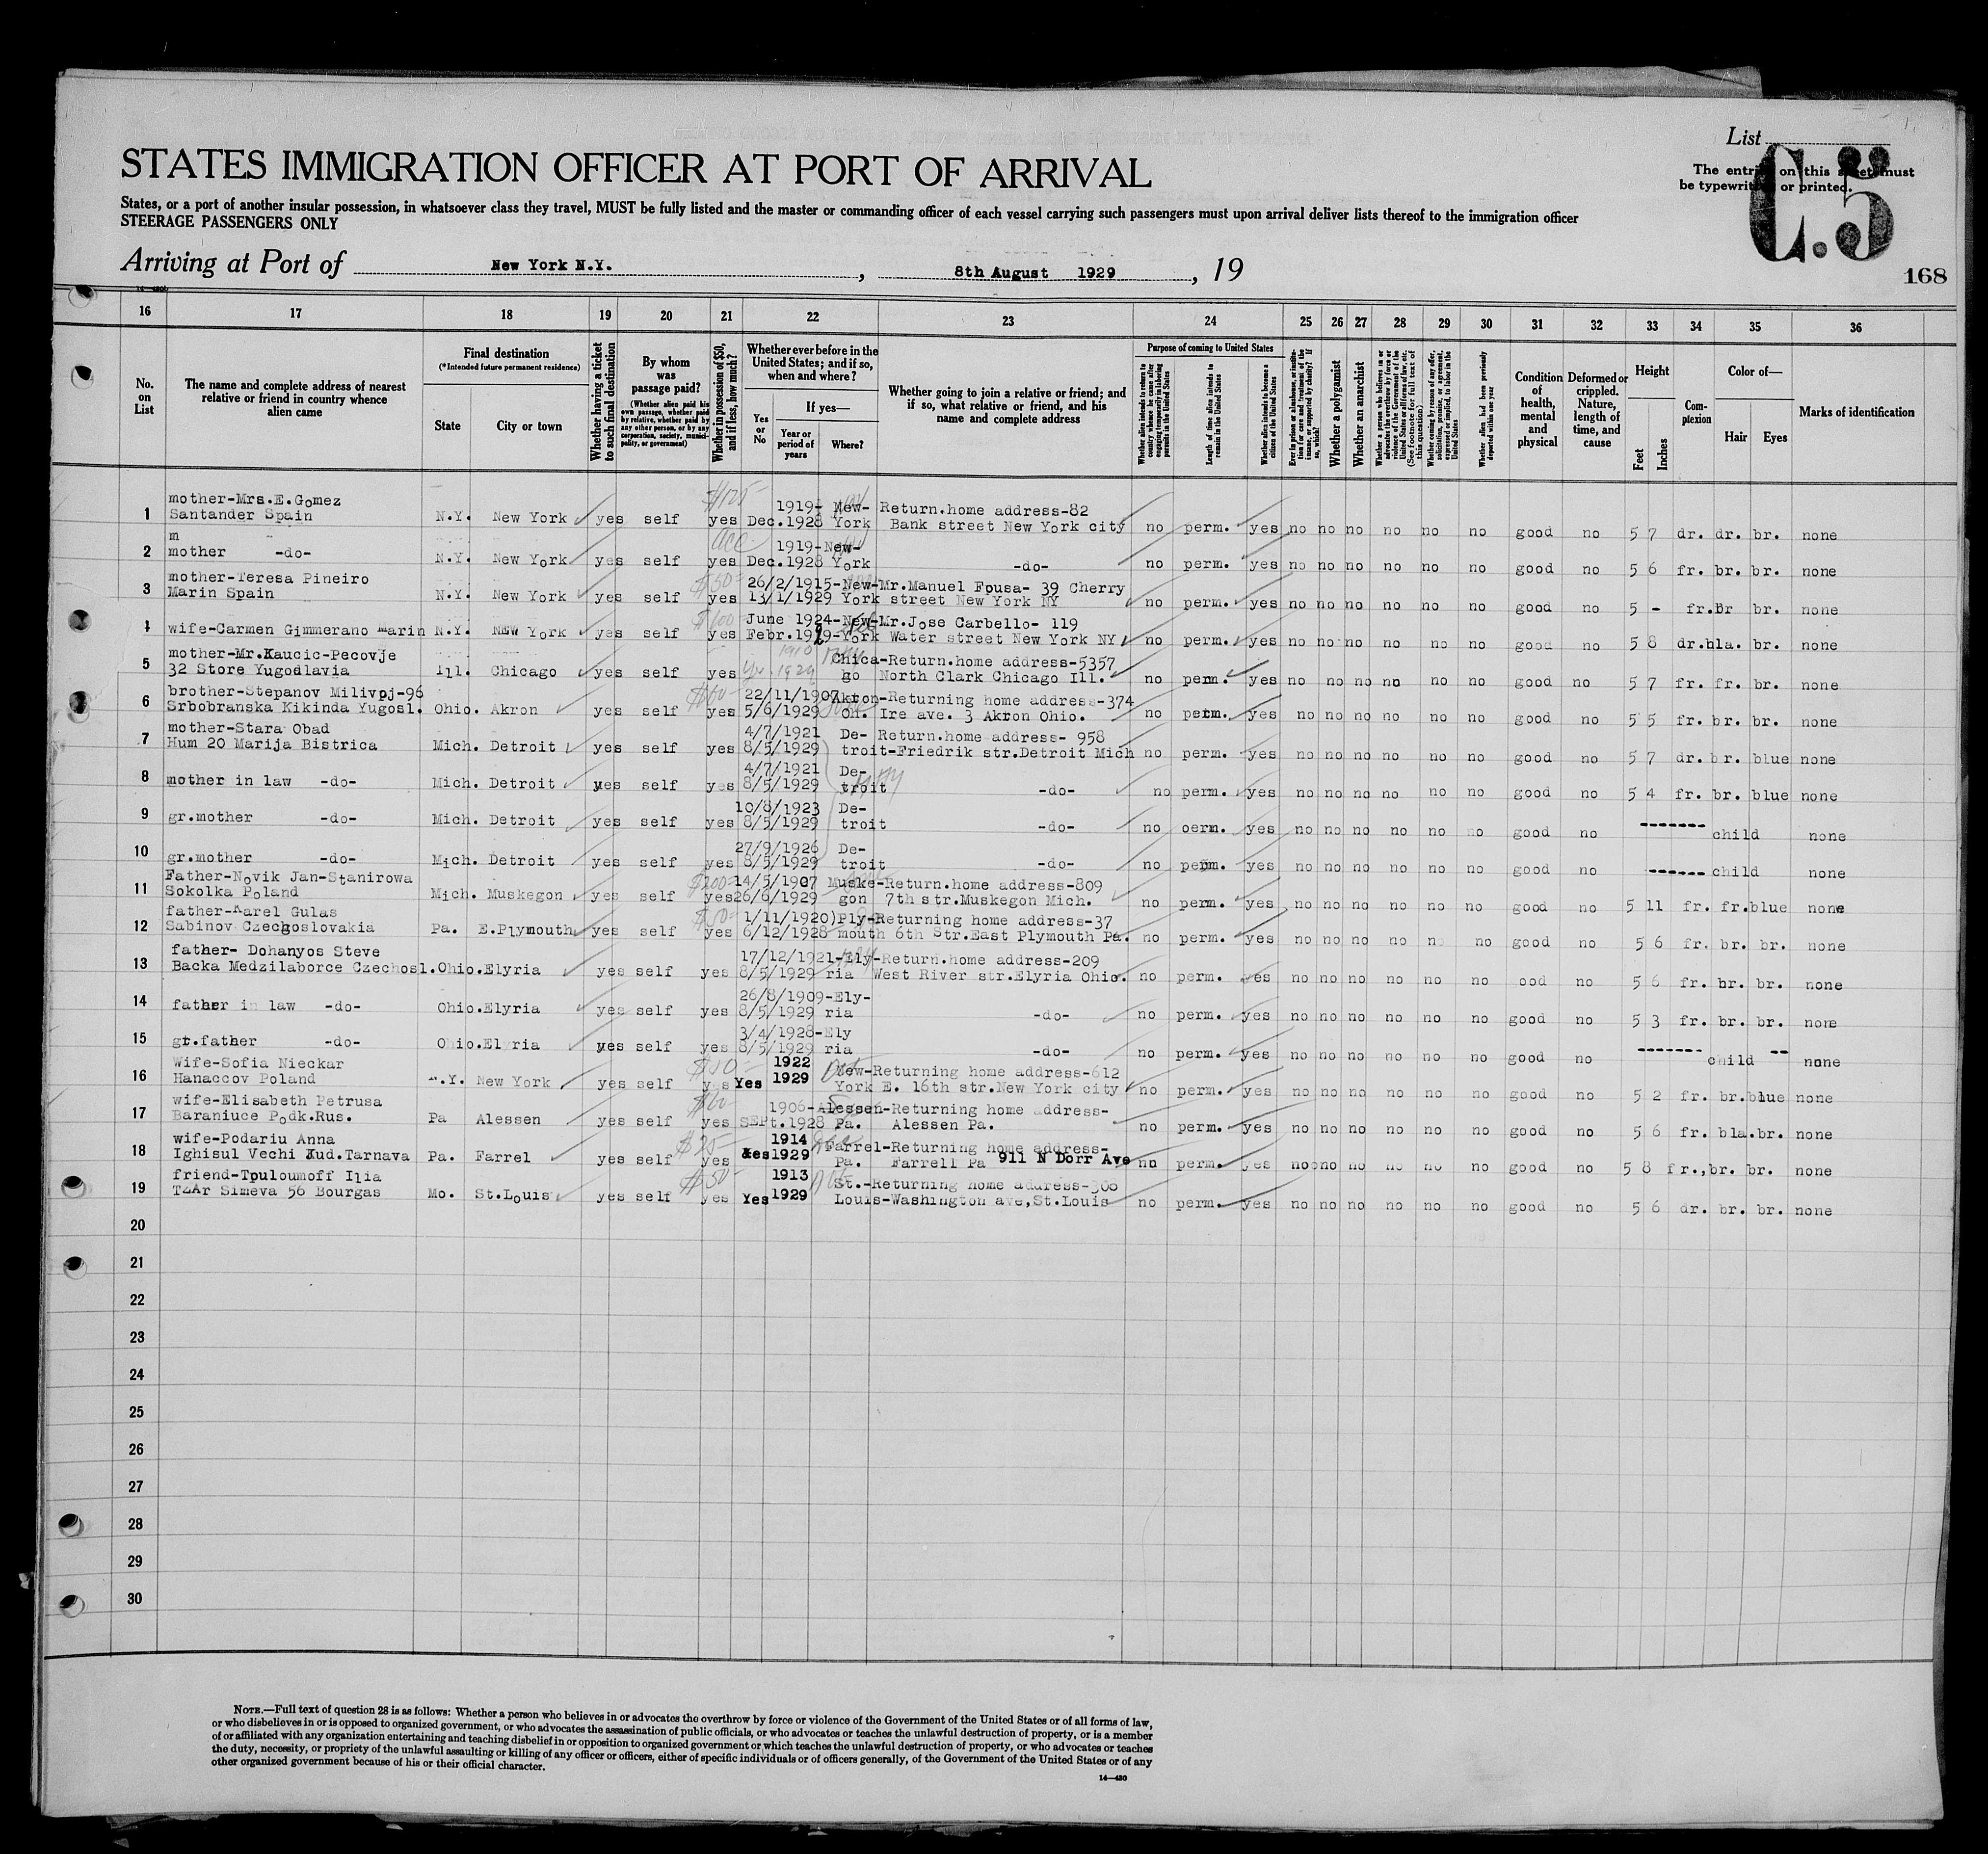 List
The entries on this sheet must
be typewritten or printed.
C.5
168
STATES IMMIGRATION OFFICER AT PORT OF ARRIVAL
States, or a port of another insular possession, in whatsoever class they travel, MUST be fully listed and the master or commanding officer of each vessel carrying such passengers must upon arrival deliver lists thereof to the immigration officer
STEERAGE PASSENGERS ONLY
Arriving at Port of New York N.Y. , 8th August 1929 , 19
16 17 18 19 20 21 22 23 24 25 26 27 28 29 30 31 32 33 34 35 36
No. on List
The name and complete address of nearest relative or friend in country whence alien came
Final destination
(*Intended future permanent residence)
State
City or town
Whether having a ticket to such final destination
By whom was passage paid?
(Whether alien paid his own passage, whether paid by relative, whether paid by any other person, or by any corporation, society, municipality, or government)
Whether in possession of $50, and if less, how much?
Whether ever before in the United States; and if so, when and where?
Yes or No
If yes—
Year or period of years
Where?
Whether going to join a relative or friend; and if so, what relative or friend, and his name and complete address
Purpose of coming to United States
Length of time alien intends to remain in the United States
Whether alien intends to become a citizen of the United States
Whether a polygamist
Whether an anarchist
Whether alien had been previously deported within one year
Condition of health, mental and physical
Deformed or crippled. Nature, length of time, and cause
Height
Feet
Inches
Complexion
Color of—
Hair
Eyes
Marks of identification
mother-Mrs.E.Gomez 1919- New- Return.home address-82
1 Santander Spain N.Y. New York yes self yes Dec.1928 York Bank street New York city no perm. yes no no no no no no good no 5 7 dr. dr. br. none
m 1919-New-
2 mother -do- N.Y. New York yes self yes Dec.1928 York -do- no perm. yes no no no no no no good no 5 6 fr. br. br. none
mother-Teresa Pineiro 26/2/1915-New-Mr.Manuel Fousa- 39 Cherry
3 Marin Spain N.Y. New York yes self yes 13/1/1929 York street New York NY no perm. yes no no no no no no good no 5 - fr.Br br. none
June 1924-New-Mr.Jose Carbello- 119
4 wife-Carmen Gimmerano marin N.Y. NEW York yes self yes Febr.1929-York Water street New York NY no perm. yes no no no no no no good no 5 8 dr.bla. br. none
mother-Mr.Kaucic-Pecovje Chica-Return.home address-5357
5 32 Store Yugodlavia Ill. Chicago yes self yes go North Clark Chicago Ill. no perm. yes no no no no no no good no 5 7 fr. fr. br. none
brother-Stepanov Milivoj-96 22/11/1907 Akron-Returning home address-374
6 Srbobranska Kikinda Yugosl. Ohio. Akron yes self yes 5/6/1929 Oh. Ire ave. 3 Akron Ohio. no perm. yes no no no no no no good no 5 5 fr. br. br. none
mother-Stara Obad 4/7/1921 De- Return.home address- 958
7 Hum 20 Marija Bistrica Mich. Detroit yes self yes 8/5/1929 troit-Friedrik str.Detroit Mich no perm. yes no no no no no no good no 5 7 dr. br. blue none
4/7/1921 De-
8 mother in law -do- Mich. Detroit yes self yes 8/5/1929 troit -do- no perm. yes no no no no no no good no 5 4 fr. br. blue none
10/8/1923 De-
9 gr.mother -do- Mich. Detroit yes self yes 8/5/1929 troit -do- no oerm. yes no no no no no no good no ------- child none
27/9/1926 De-
10 gr.mother -do- Mich. Detroit yes self yes 8/5/1929 troit -do- no perm. yes no no no no no no good no ------ child none
Father-Novik Jan-Stanirowa $200- 14/5/1907 Muske-Return.home address-809
11 Sokolka Poland Mich. Muskegon yes self yes 26/6/1929 gon 7th str.Muskegon Mich. no perm. yes no no no no no no good no 5 11 fr. fr.blue none
father-Karel Gulas 1/11/1920)Ply-Returning home address-37
12 Sabinov Czechoslovakia Pa. E.Plymouth yes self yes 6/12/1928 mouth 6th Str.East Plymouth Pa. no perm. yes no no no no n no good no 5 6 fr. br. br. none
father- Dohanyos Steve 17/12/1921-Ely-Return.home address-209
13 Backa Medzilaborce Czechosl.Ohio.Elyria yes self yes 8/5/1929 ria West River str.Elyria Ohio. no perm. yes no no no no no no ood no 5 6 fr. br. br. none
26/8/1909-Ely-
14 father in law -do- Ohio.Elyria yes self yes 8/5/1929 ria -do- no perm. yes no no no no no no good no 5 3 fr. br. br. none
3/4/1928-Ely
15 gr.father -do- Ohio.Elyria yes self yes 8/5/1929 ria -do- no perm. yes no no no no no no good no ------- child -- none
Wife-Sofia Nieckar 1922 New-Returning home address-612
16 Hanaccov Poland N.Y. New York yes self yes Yes 1929 York E. 16th str.New York city no perm. yes no no no no no no good no 5 2 fr. br.blue none
wife-Elisabeth Petrusa $60- 1906-Alessen-Returning home address-
17 Baraniuce Podk.Rus. Pa Alessen yes self yes SEPt.1928 Pa. Alessen Pa. no perm. yes no no no no no no good no 5 6 fr. bla.br. none
wife-Podariu Anna $25- 1914 Farrel-Returning home address-
18 Ighisul Vechi Jud.Tarnava Pa. Farrel yes self yes Yes 1929 Pa. Farrell Pa 911 N Dorr Ave no perm. yes no no no no no no good no 5 8 fr.,br. br. none
friend-Touloumoff Ilia $50- 1913 St.-Returning home address-308
19 TzAr Simeva 56 Bourgas Mo. St.Louis yes self yes Yes 1929 Louis-Washington ave,St.Louis no perm. yes no no no no no no good no 5 6 dr. br. br. none
20
21
22
23
24
25
26
27
28
29
30
NOTE.—Full text of question 28 is as follows: Whether a person who believes in or advocates the overthrow by force or violence of the Government of the United States or of all forms of law,
or who disbelieves in or is opposed to organized government, or who advocates the assassination of public officials, or who advocates or teaches the unlawful destruction of property, or is a member
of or affiliated with any organization entertaining and teaching disbelief in or opposition to organized government or which teaches the unlawful destruction of property, or who advocates or teaches
the duty, necessity, or propriety of the unlawful assaulting or killing of any officer or officers, either of specific individuals or of officers generally, of the Government of the United States or of any
other organized government because of his or their official character.
14—430